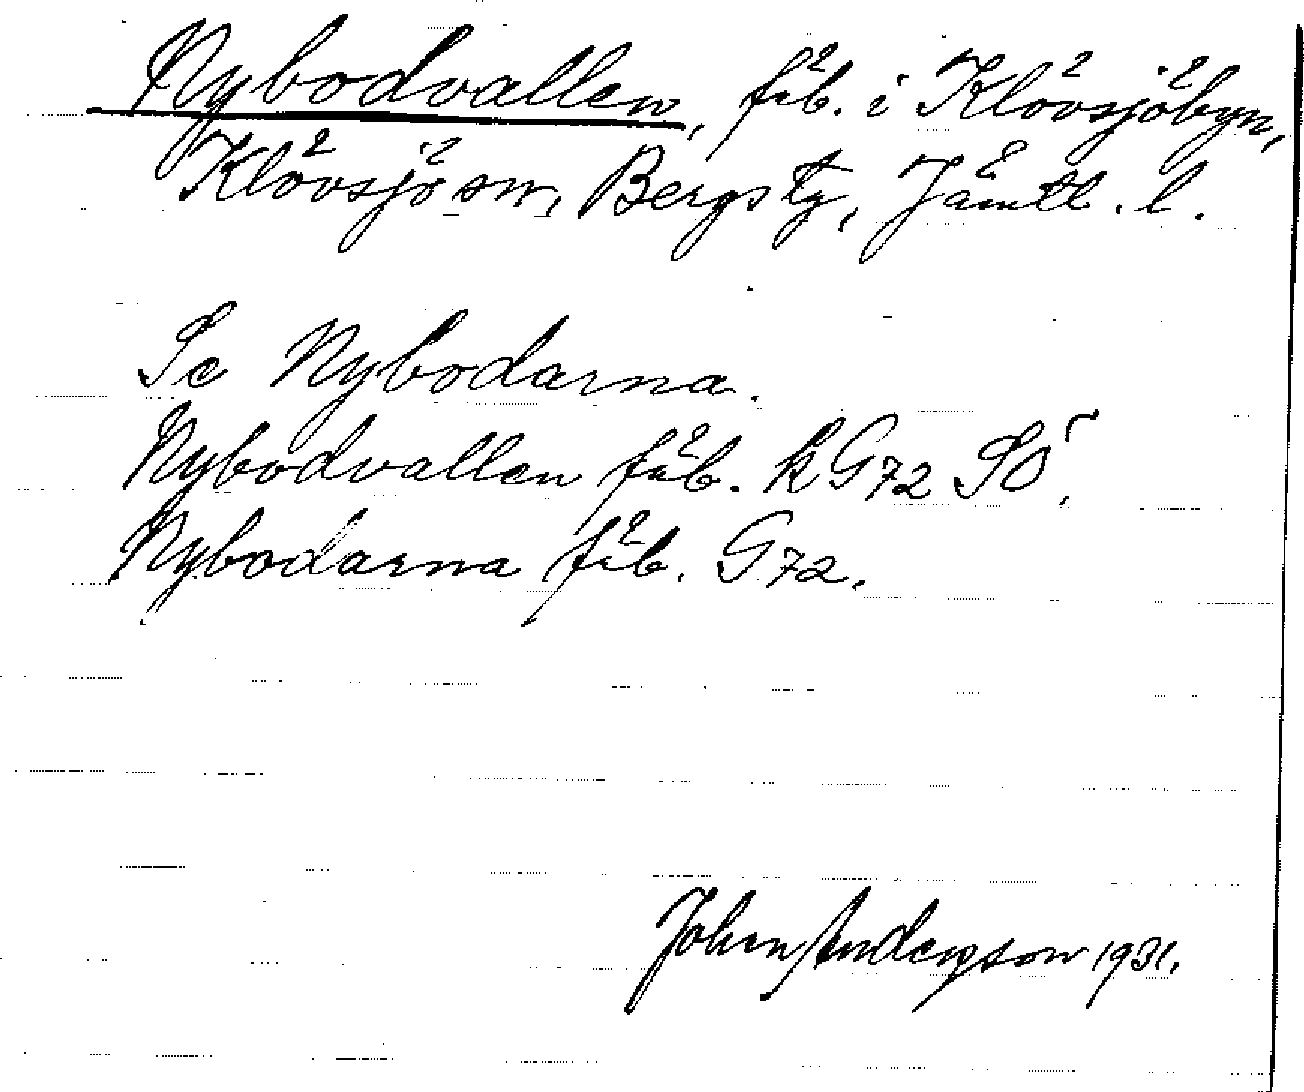 Nybodvallen, fäb. i Klövsjöbyn,
Klövsjö sn, Bergs tg, Jämtl. l.
Se Nybodarna.
Nybodvallen fäb. k G72 SO,
Nybodarna fäb. G72.
John Andersson 1931.